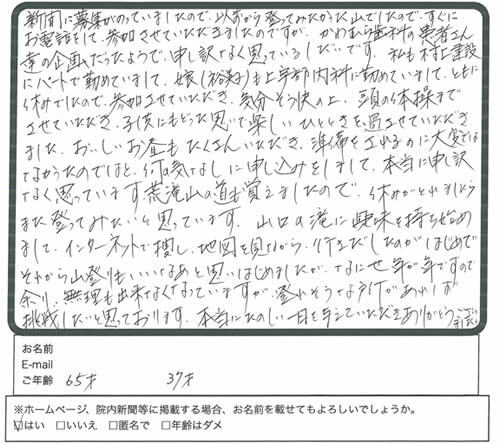 新聞に募集がのっていましたので、以前から登ってみたかった山でしたので、すぐに
お電話をして、参加させていただきましたのですが、かわむら歯科の患者さん
達の企画だったようで、申し訳なく思っているしだいです。私も村上建設
にパートで勤めていまして、娘(裕希)も上宇部内科に勤めていまして、ともに
休みでしたので、参加させていただき、気分そう快の上、頭の体操まで
させていただき、子供にもどった思いで楽しいひとときを過させていただき
ました。おいしいお昼もたくさんいただき、準備をされるのに大変では
なかったのではと、何の気なしに申し込みをしまして、本当に申し訳
なく思っています。荒滝山の道も覚えましたので、休みがとれましたら
また登ってみたいと思っています。山口の滝に興味を持ち始め
まして、インターネットで捜し、地図を見ながら、行きだしたのがはじめで
それから山登りもいいなあと思いはじめましたが、なにせ年が年ですので
余り、無理も出来なくなっていますが、登れそうな所があれば
挑戦したいと思っております。本当にたのしい一日を与えていただきありがとうございました
お名前
E-mail
ご年齢 65才 37才
※ホームページ、院内新聞等に掲載する場合、お名前を載せてもよろしいでしょうか。
☑はい □いいえ □匿名で □年齢はダメ